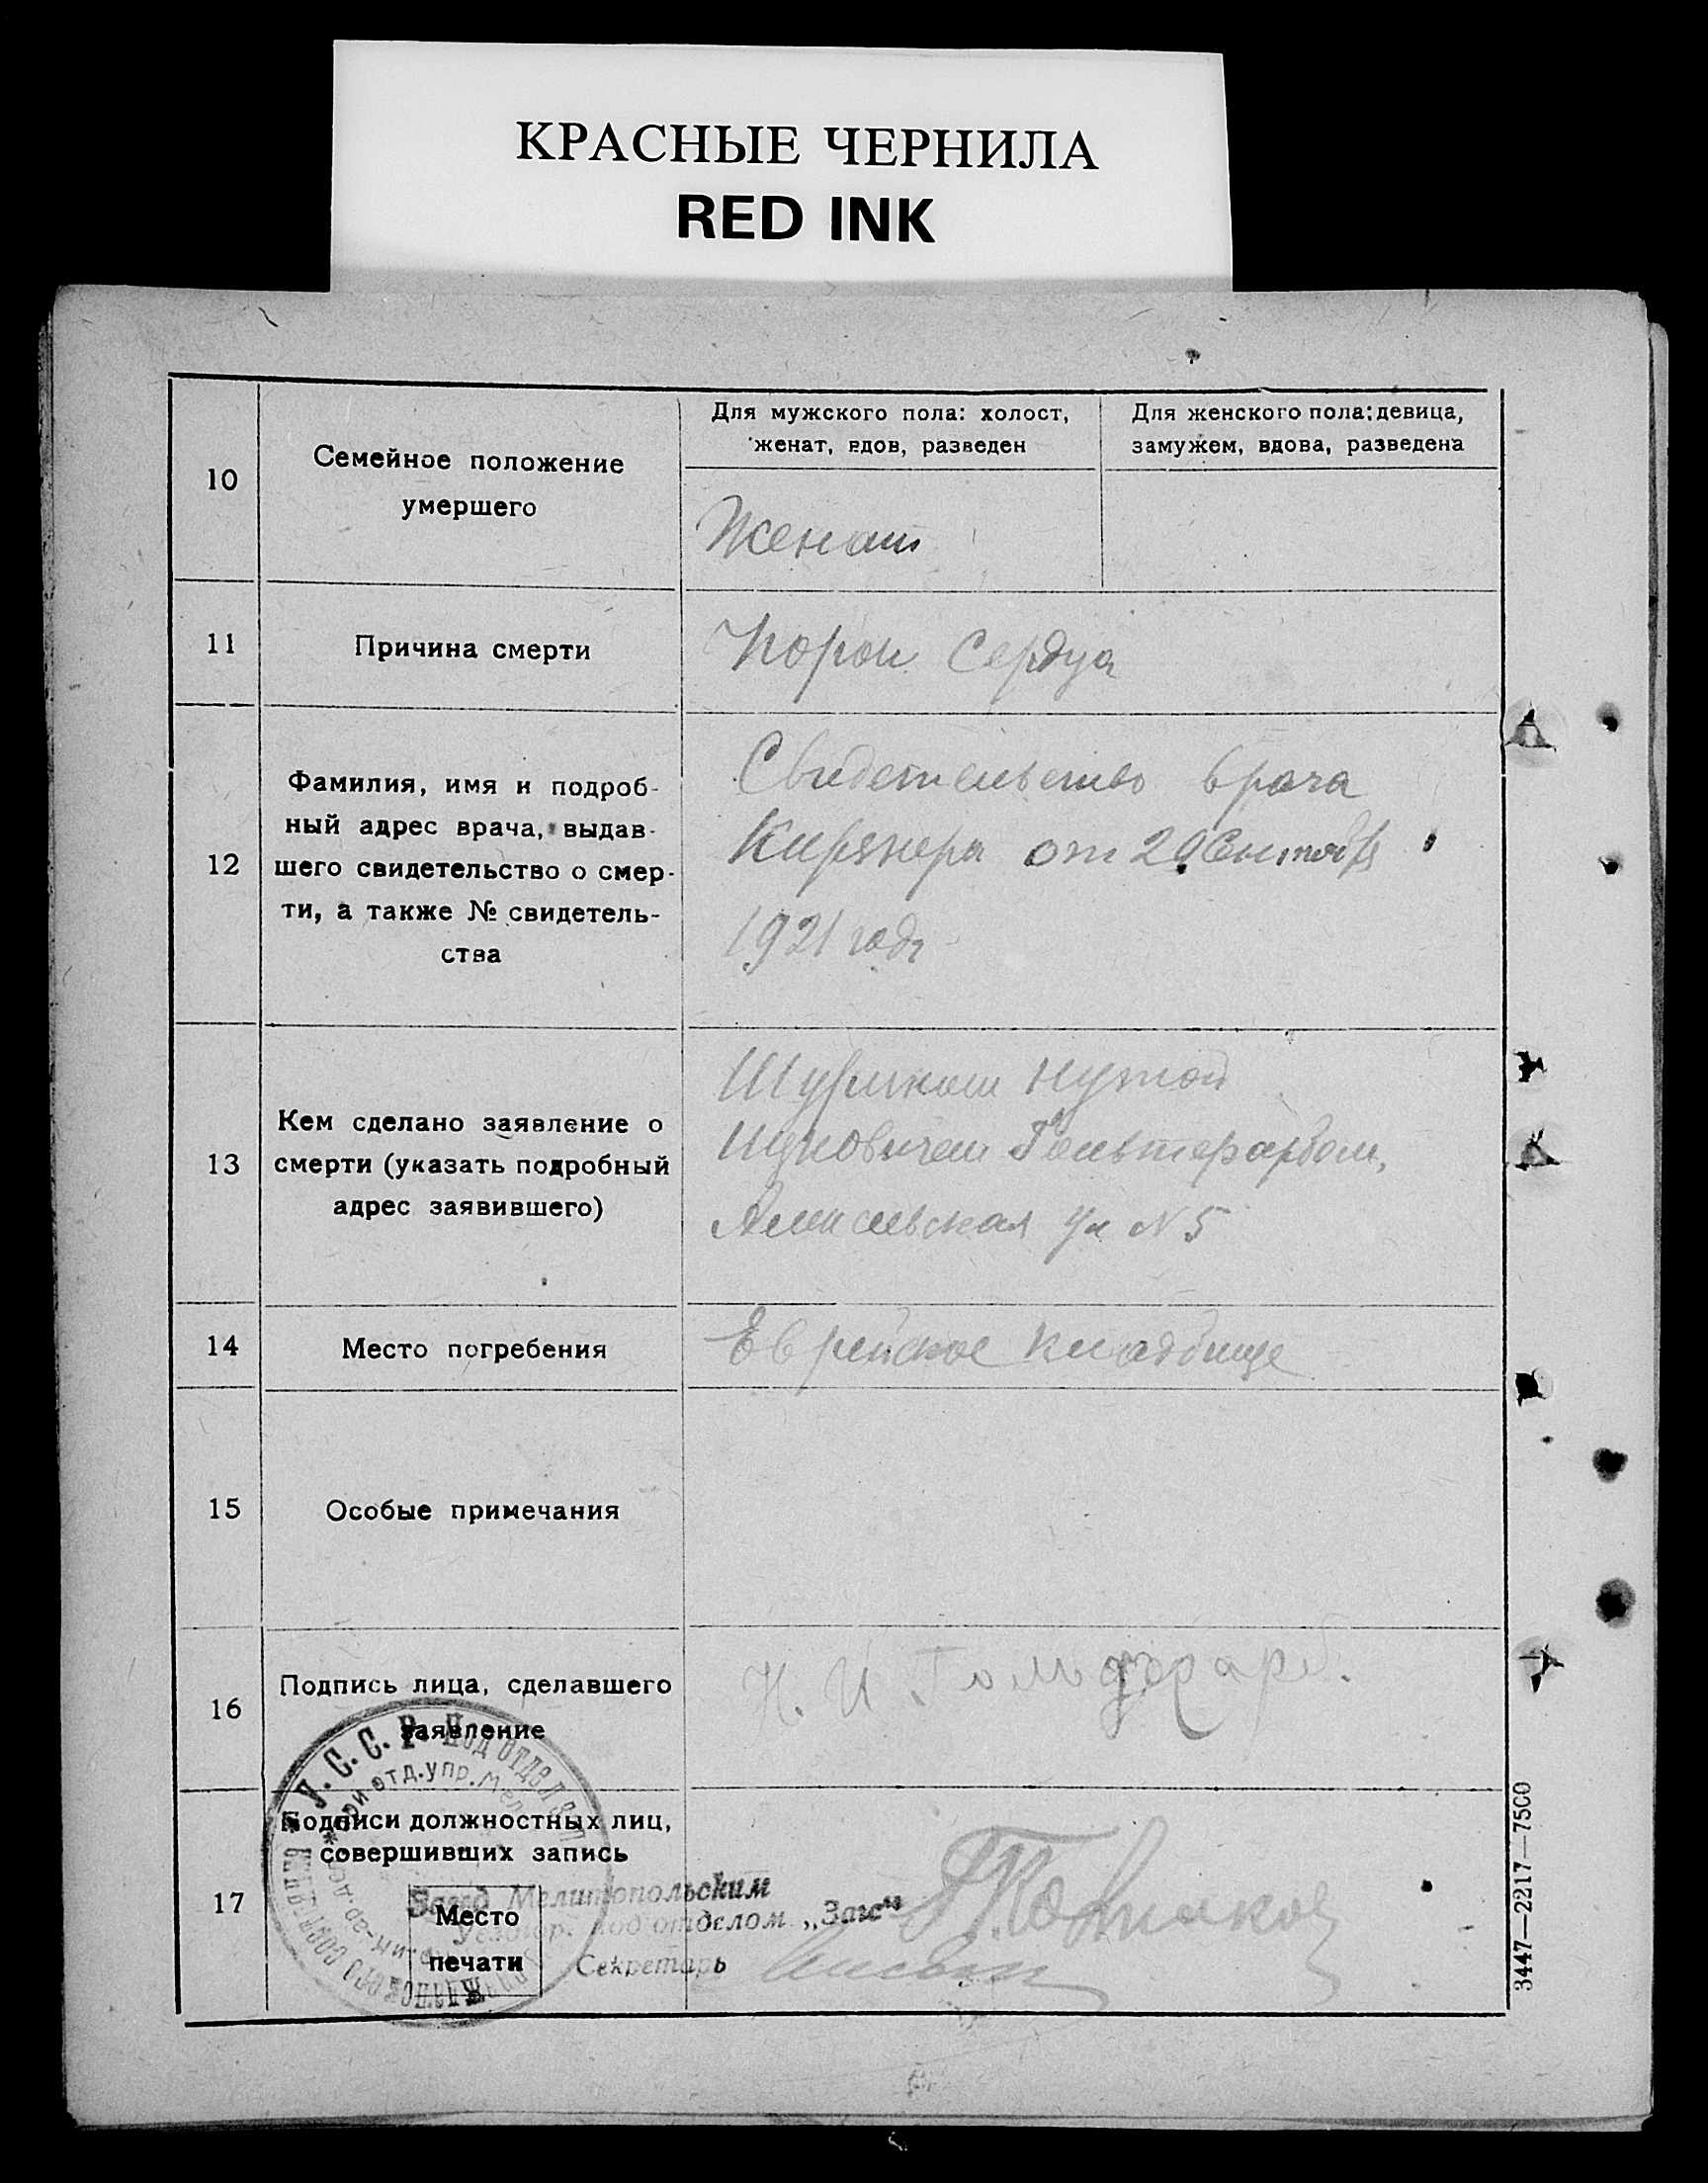 КРАСНЫЕ ЧЕРНИЛА
RED INK
10
Семейное положение
умершего
Для мужского пола: холост,
женат, вдов, разведен
Для женского пола: девица,
замужем, вдова, разведена
Женат
11
Причина смерти
Порок сердца
12
Фамилия, имя и подроб-
ный адрес врача, выдав-
шего свидетельство о смер-
ти, а также № свидетель-
ства
Свидетельство врача
от 29 Сентября
1921 года
13
Кем сделано заявление о
смерти (указать подробный
адрес заявившего)
ул N 5
14
Место погребения
Еврейское кладбище
15
Особые примечания
16
Подпись лица, сделавшего
заявление
Н. И. Гольдфарб.
17
Подписи должностных лиц,
совершивших запись
Место
печати
Завед Мелитопольским
под отделом „Загс“
Секретарь
У. С. С. Р. Под отдел
при отд. упр. Мел
3447—2217—7500